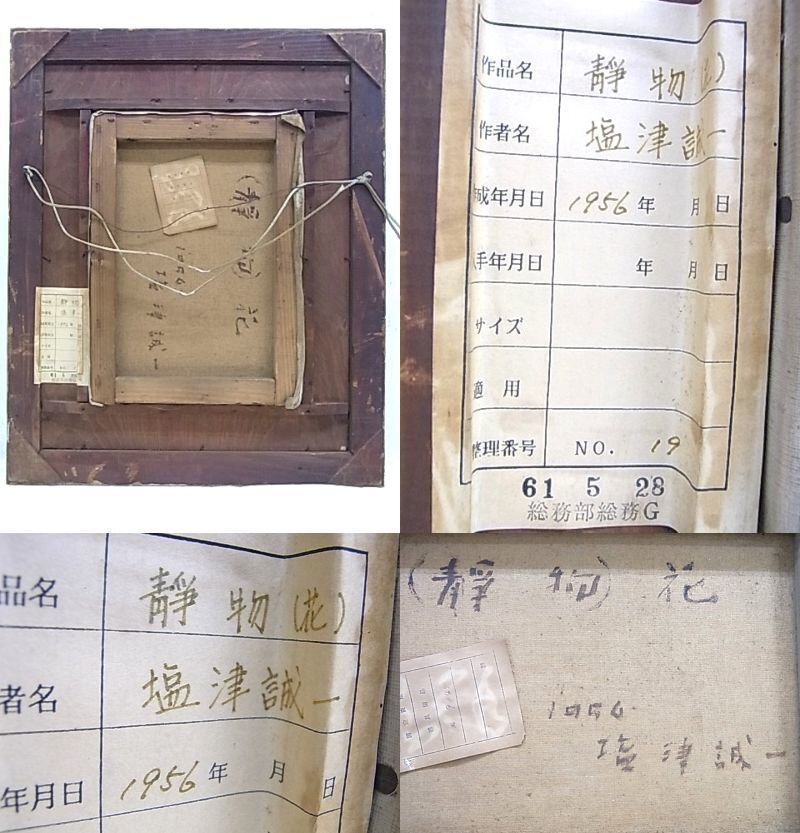 (靜物)花
1956
塩津誠一
作品名 靜物(花)
作者名 塩津誠一
成年月日 1956年 月 日
手年月日 年 月 日
サイズ
適用
整理番号 NO. 19
61 5 28
総務部総務G
品名 靜物(花)
者名 塩津誠一
年月日 1956年 月 日
(靜物)花
1956.
塩津誠一